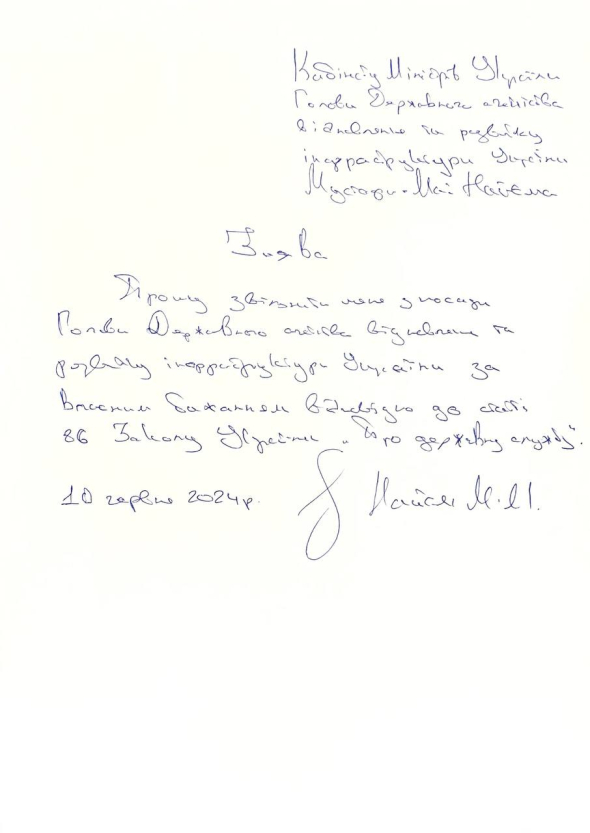 Кабінету Міністрів України
Голови Державного агентства
відновлення та розвитку
інфраструктури України
Мустафи-Масі Найєма
Заява
Прошу звільнити мене з посади
Голови Державного агентства відновлення та
розвитку інфраструктури України за
власним бажанням відповідно до статті
86 Закону України „Про державну службу".
10 червня 2024р.
Найєм М.М.